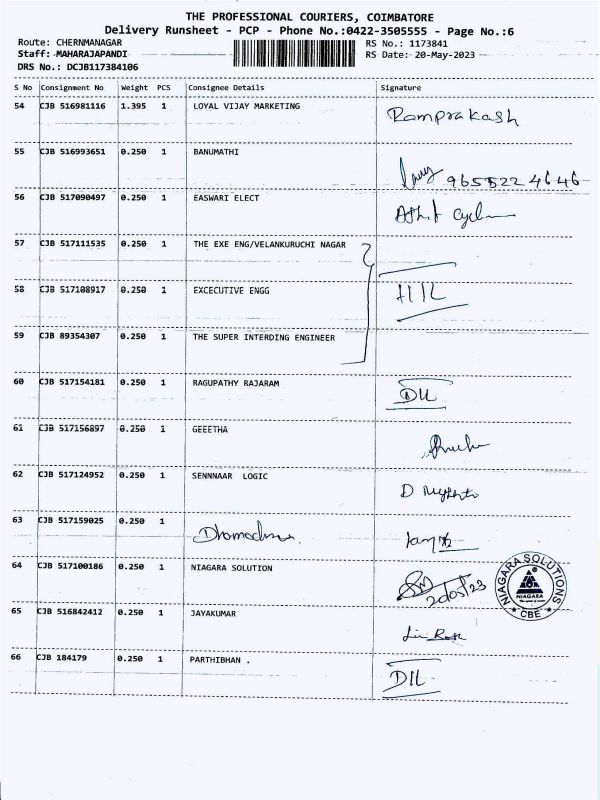 THE PROFESSIONAL COURIERS, COIMBATORE
Delivery Runsheet - PCP - Phone No.:0422-3505555 - Page No.:6
Route: CHERNMANAGAR RS No.: 1173841
Staff: MAHARAJAPANDI RS Date: 20-May-2023
DRS No.: DCJB117384106
S No Consignment No Weight PCS Consignee Details Signature
54 CJB 516981116 1.395 1 LOYAL VIJAY MARKETING Ramprakash
55 CJB 516993651 0.250 1 BANUMATHI 9655224646
56 CJB 517090497 0.250 1 EASWARI ELECT
57 CJB 517111535 0.250 1 THE EXE ENG/VELANKURUCHI NAGAR
58 CJB 517108917 0.250 1 EXCECUTIVE ENGG
59 CJB 89354307 0.250 1 THE SUPER INTERDING ENGINEER
60 CJB 517154181 0.250 1 RAGUPATHY RAJARAM
61 CJB 517156897 0.250 1 GEEETHA
62 CJB 517124952 0.250 1 SENNNAAR LOGIC
63 CJB 517159025 0.250 1
64 CJB 517100186 0.250 1 NIAGARA SOLUTION 20/05/23 NIAGARA SOLUTIONS NIAGARA CBE
65 CJB 516842412 0.250 1 JAYAKUMAR
66 CJB 184179 0.250 1 PARTHIBHAN .